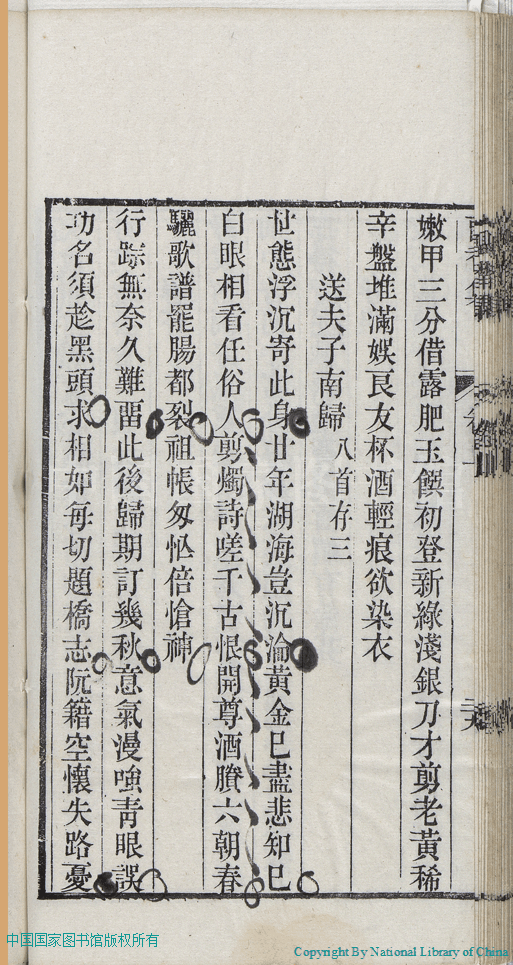 嫩甲三分借露肥玉饌初登新綠淺銀刀才剪老黃稀
辛盤堆滿娛良友杯酒輕痕欲染衣
送夫子南歸 八首存三
世態浮沉寄此身廿年湖海豈沉淪黃金已盡悲知已
白眼相看任俗人剪燭詩嗟千古恨開尊酒賸六朝春
驪歌譜罷腸都裂祖帳匆匆倍愴神
行踪無奈久難畱此後歸期訂幾秋意氣漫嗤青眼誤
功名須趁黑頭求相如每切題橋志阮籍空懷失路憂
中国国家图书馆版权所有
Copyright By National Library of China